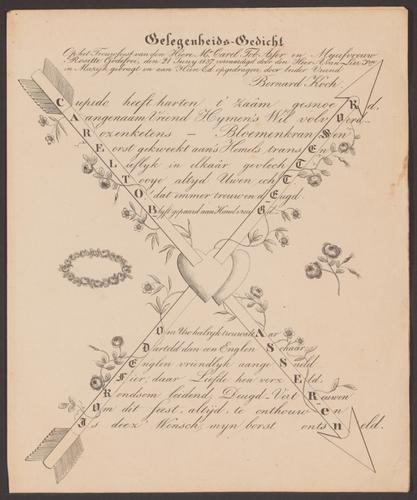 Gelegenheids-Gedicht
Op het Trouwfeest van den Heer Mr. Carel Tob. Asser en Mejufvrouw
Rosette Godefroi, den 21 Juny 1837 vervaardigd door den Heer
in Muzijk gebragt en aan Hun Ed. opgedragen door beider Vriend
Bernard Koch.
Cupido heeft harten t' zaâm gesnoeRd.
Aangenaam Vriend Hymen's Wil volvOerd
Rozenketens – BloemenkranSsen
Eerst gekweekt aan's Hemels transEn
Lieflyk in elkaâr gevlochTen
Tooge altijd Uwen echT
Od' dat immer trouw en dEugd
Blyft gepaard aan Hemel vreuGd
Om Uw huwlyk trouw altAar
Darteld dan een Englen Schaar
Englen vriendlyk aangeSneld
Fier, daar Liefde hen verzEld.
Rondsom leidend Deugd-VertRouwen
Om dit feest, altijd, te onthouwEn
Is deez' Wensch, mijn borst ontsneld.